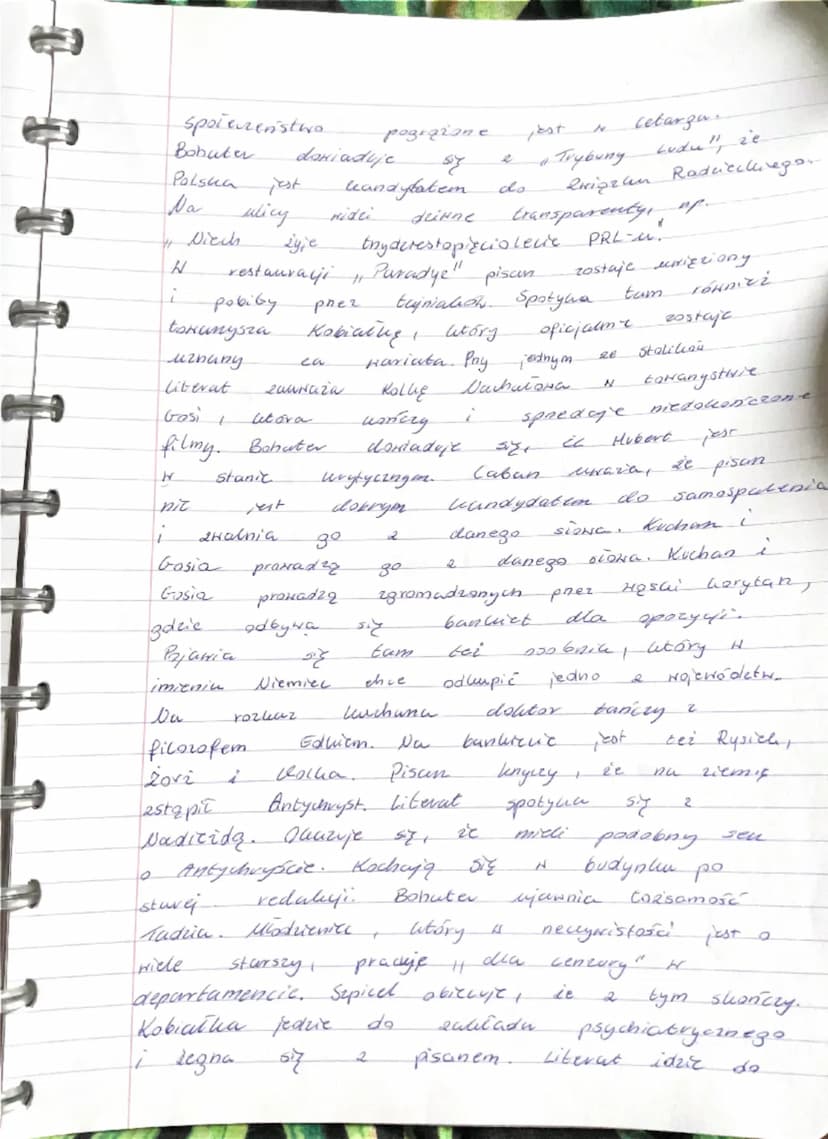 społeczeństwo pogrążone jest w letargu.
Bohater dowiaduje się z „Trybuny Ludu", że
Polska jest kandydatem do Związku Radzieckiego.
Na ulicy widzi dziwne transparenty, np.
„Niech żyje trzydziestopięciolecie PRL-u!
W restauracji „Paradyz" pisarz zostaje uwięziony
i pobity przez tajniaków. Spotyka tam również
towarzysza Kobiałkę, który oficjalnie zostaje
uznany za wariata. Przy jednym ze stolików
literat zauważa Kolkę Nachałowa w towarzystwie
Gosi, która kończy i sprzedaje niedokończone
filmy. Bohater dowiaduje się, że Hubert jest
w stanie krytycznym. Caban uważa, że pisarz
nie jest dobrym kandydatem do samospalenia
i zwalnia go z danego słowa. Kochan i
Gosia prowadzą go z danego słowa. Kochan i
Gosia prowadzą zgromadzonych przez wąski korytarz,
gdzie odbywa się bankiet dla opozycji.
Pojawia się tam też osobnik, który w
imieniu Niemiec chce odkupić jedno z województw.
Na rozkaz kochana doktor tańczy z
filozofem Edkiem. Na bankiecie jest też Rysiek,
Żorż i Kolka. Pisarz krzyczy, że na ziemię
zstąpił Antychryst. Literat spotyka się z
Nadieżdą. Okazuje się, że mieli podobny sen
o Antychryście. Kochają się w budynku po
starej redakcji. Bohater ujawnia tożsamość
Tadzia. Młodzieniec, który w rzeczywistości jest o
wiele starszy, pracuje „dla cenzury" w
departamencie. Szpicel obiecuje, że z tym skończy.
Kobiałka jedzie do zakładu psychiatrycznego
i żegna się z pisarzem. Literat idzie do